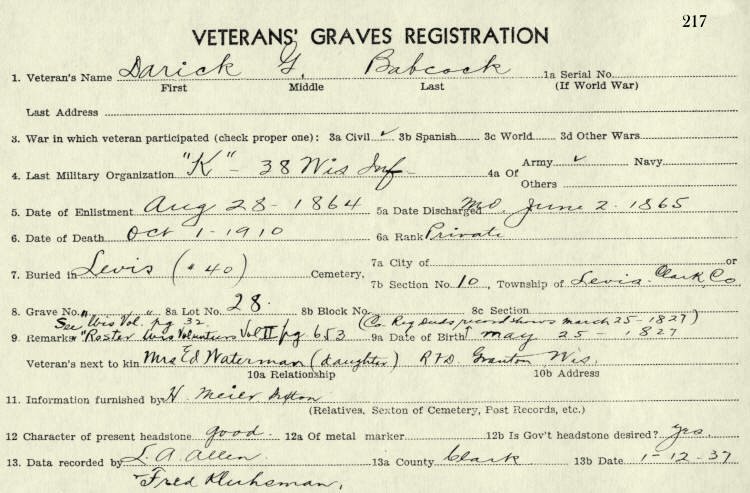 217
VETERANS' GRAVES REGISTRATION
1. Veteran's Name Darick G. Babcock 1a Serial No.
First Middle Last (If World War)
Last Address
3. War in which veteran participated (check proper one): 3a Civil ✓ 3b Spanish 3c World 3d Other Wars
4. Last Military Organization "K" - 38 Wis Inf- 4a Of Army ✓ Navy
Others
5. Date of Enlistment Aug 28 - 1864 5a Date Discharged MO June 2 - 1865
6. Date of Death Oct 1 - 1910 6a Rank Private
7. Buried in Levis (#40) Cemetery, 7a City of or
7b Section No. 10, Township of Levis Clark Co
8. Grave No. " " 8a Lot No. 28. 8b Block No. 8c Section
See Wis Vol. pg 32 (Co. Reg Deeds record shows march 25 - 1827)
9. Remarks "Roster Wis Volunteers Vol II pg 653 9a Date of Birth May 25 - 1827
Veteran's next to kin Mrs Ed Waterman (daughter) RFD. Granton, Wis.
10a Relationship 10b Address
11. Information furnished by H. Meier Sexton
(Relatives, Sexton of Cemetery, Post Records, etc.)
12 Character of present headstone good. 12a Of metal marker 12b Is Gov't headstone desired? yes.
13. Data recorded by L. A. Allen 13a County Clark 13b Date 1-12-37
Fred